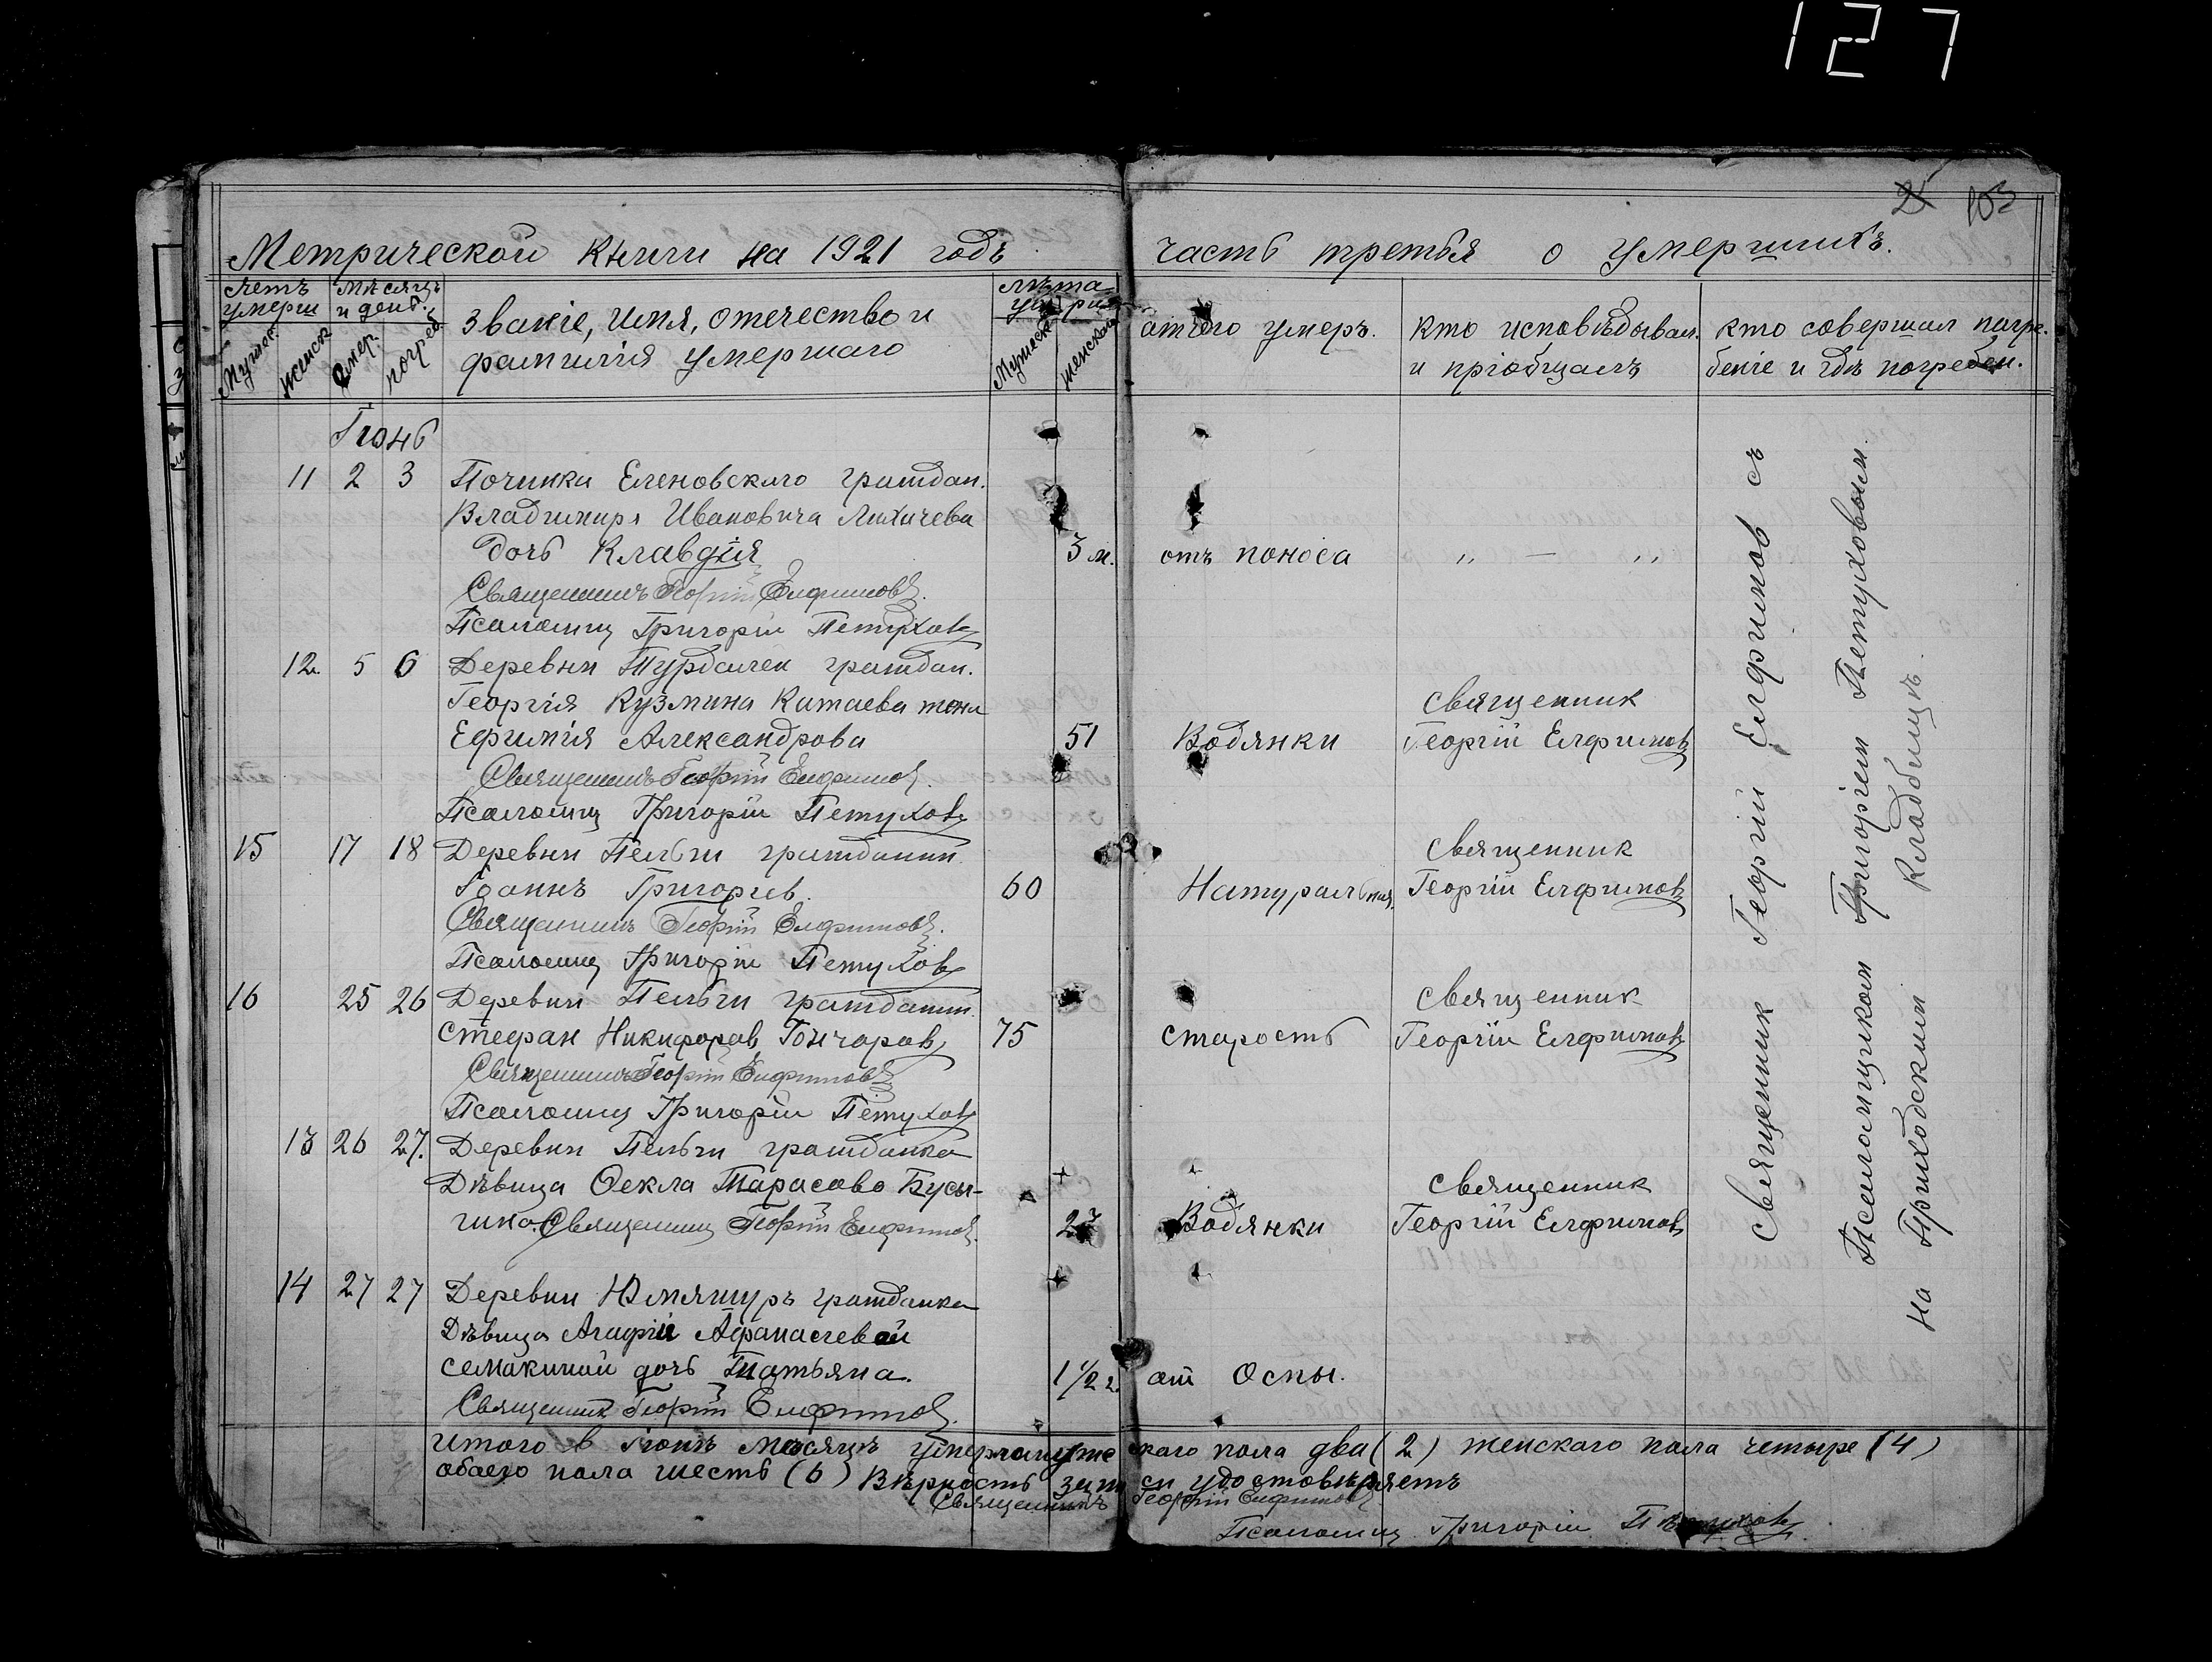 127
2 103
Метрической книги на 1921 годъ часть третья о умершихъ.
счетъ умерш
Мужск. женск
Мѣсяцъ и день.
умер. погреб.
Званіе, имя, отечество и
фамилія умершаго
лѣта умерш
Мужск женскаго
отчего умеръ.
кто исповѣдывал.
и пріобщалъ
кто совершал погре-
беніе и гдѣ погребен.
Іюнь
11 2 3 Починка Еленовскаго граждан.
Владимира Ивановича Лихичева
дочь Клавдія 3 м. отъ поноса „ — „
Священникъ Георгій Елфимовъ.
Псаломщ Григорій Петухов
12. 5 6 Деревни граждан.
Георгія Кузмина Катаева жена священник
Ефимія Александрова 51 Водянки Георгій Елфимов
Священникъ Георгій Елфимов.
Псаломщ Григорій Петухов
15 17 18 Деревни Пельги гражданин. священник
Іоаннъ Григорьев. 60 Натуральная. Георгій Елфимов
Священникъ Георгій Елфимовъ.
Псаломщ Григорій Петухов
16 25 26 Деревни Пельги гражданин. священник
Стефан Никифоров Гончаров 75 старость Георгій Елфимов
Священникъ Георгій Елфимовъ
Псаломщ Григорій Петухов
13 26 27. Деревни Пельги гражданка
Дѣвица Ѳекла Тарасова Бусы- священник
гина. Священник Георгій Елфимов. 23 Водянки Георгій Елфимов
14 27 27 Деревни Юмяшуръ гражданка
Дѣвица Агафіи Афанасіевой
семакиной дочь Татьяна. 1 1/2 г. от Оспы.
Священник Георгій Елфимов.
Священник Георгій Елфимов съ
Псаломщиком Григоріем Петуховым
на Приходским Кладбищѣ.
итого в іюнѣ мѣсяцѣ умерло мужескаго пола два (2) женскаго пола четыре (4)
обаего пола шесть (6) Вѣрность записи удостовѣряетъ
Священникъ Георгій Елфимовъ
Псаломщ Григорій Петухов